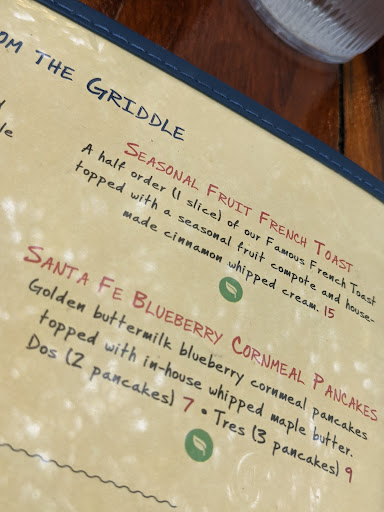 OM THE GRIDDLE
SEASONAL FRUIT FRENCH TOAST
A half order (1 slice) of our Famous French Toast
topped with a seasonal fruit compote and house-
made cinnamon whipped cream. 15
SANTA FE BLUEBERRY CORNMEAL PANCAKES
Golden buttermilk blueberry cornmeal pancakes
topped with in-house whipped maple butter.
Dos (2 pancakes) 7 • Tres (3 pancakes) 9